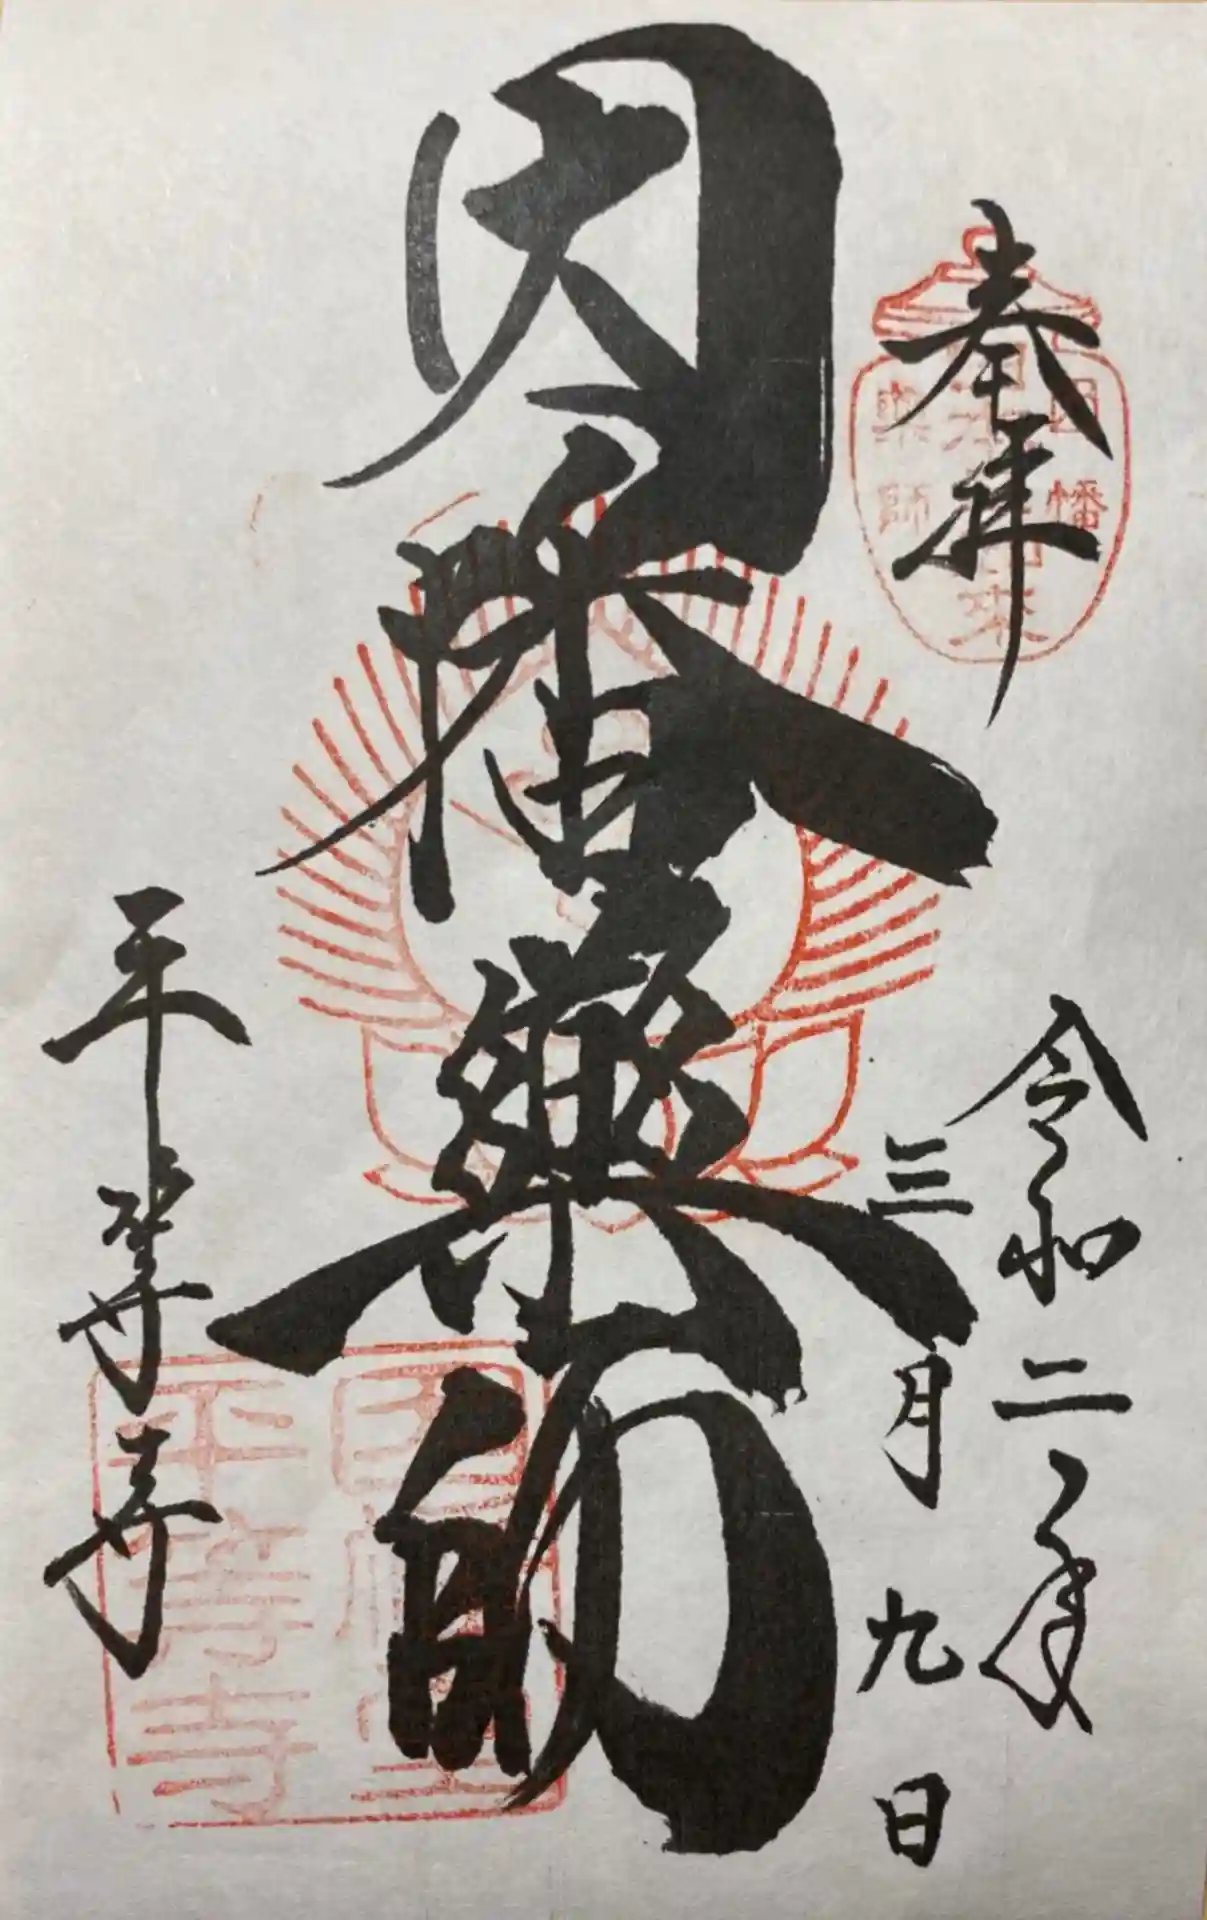 奉拝
因幡
薬師
令和二年
三月九日
因幡薬師
平等寺
因幡堂
平等寺